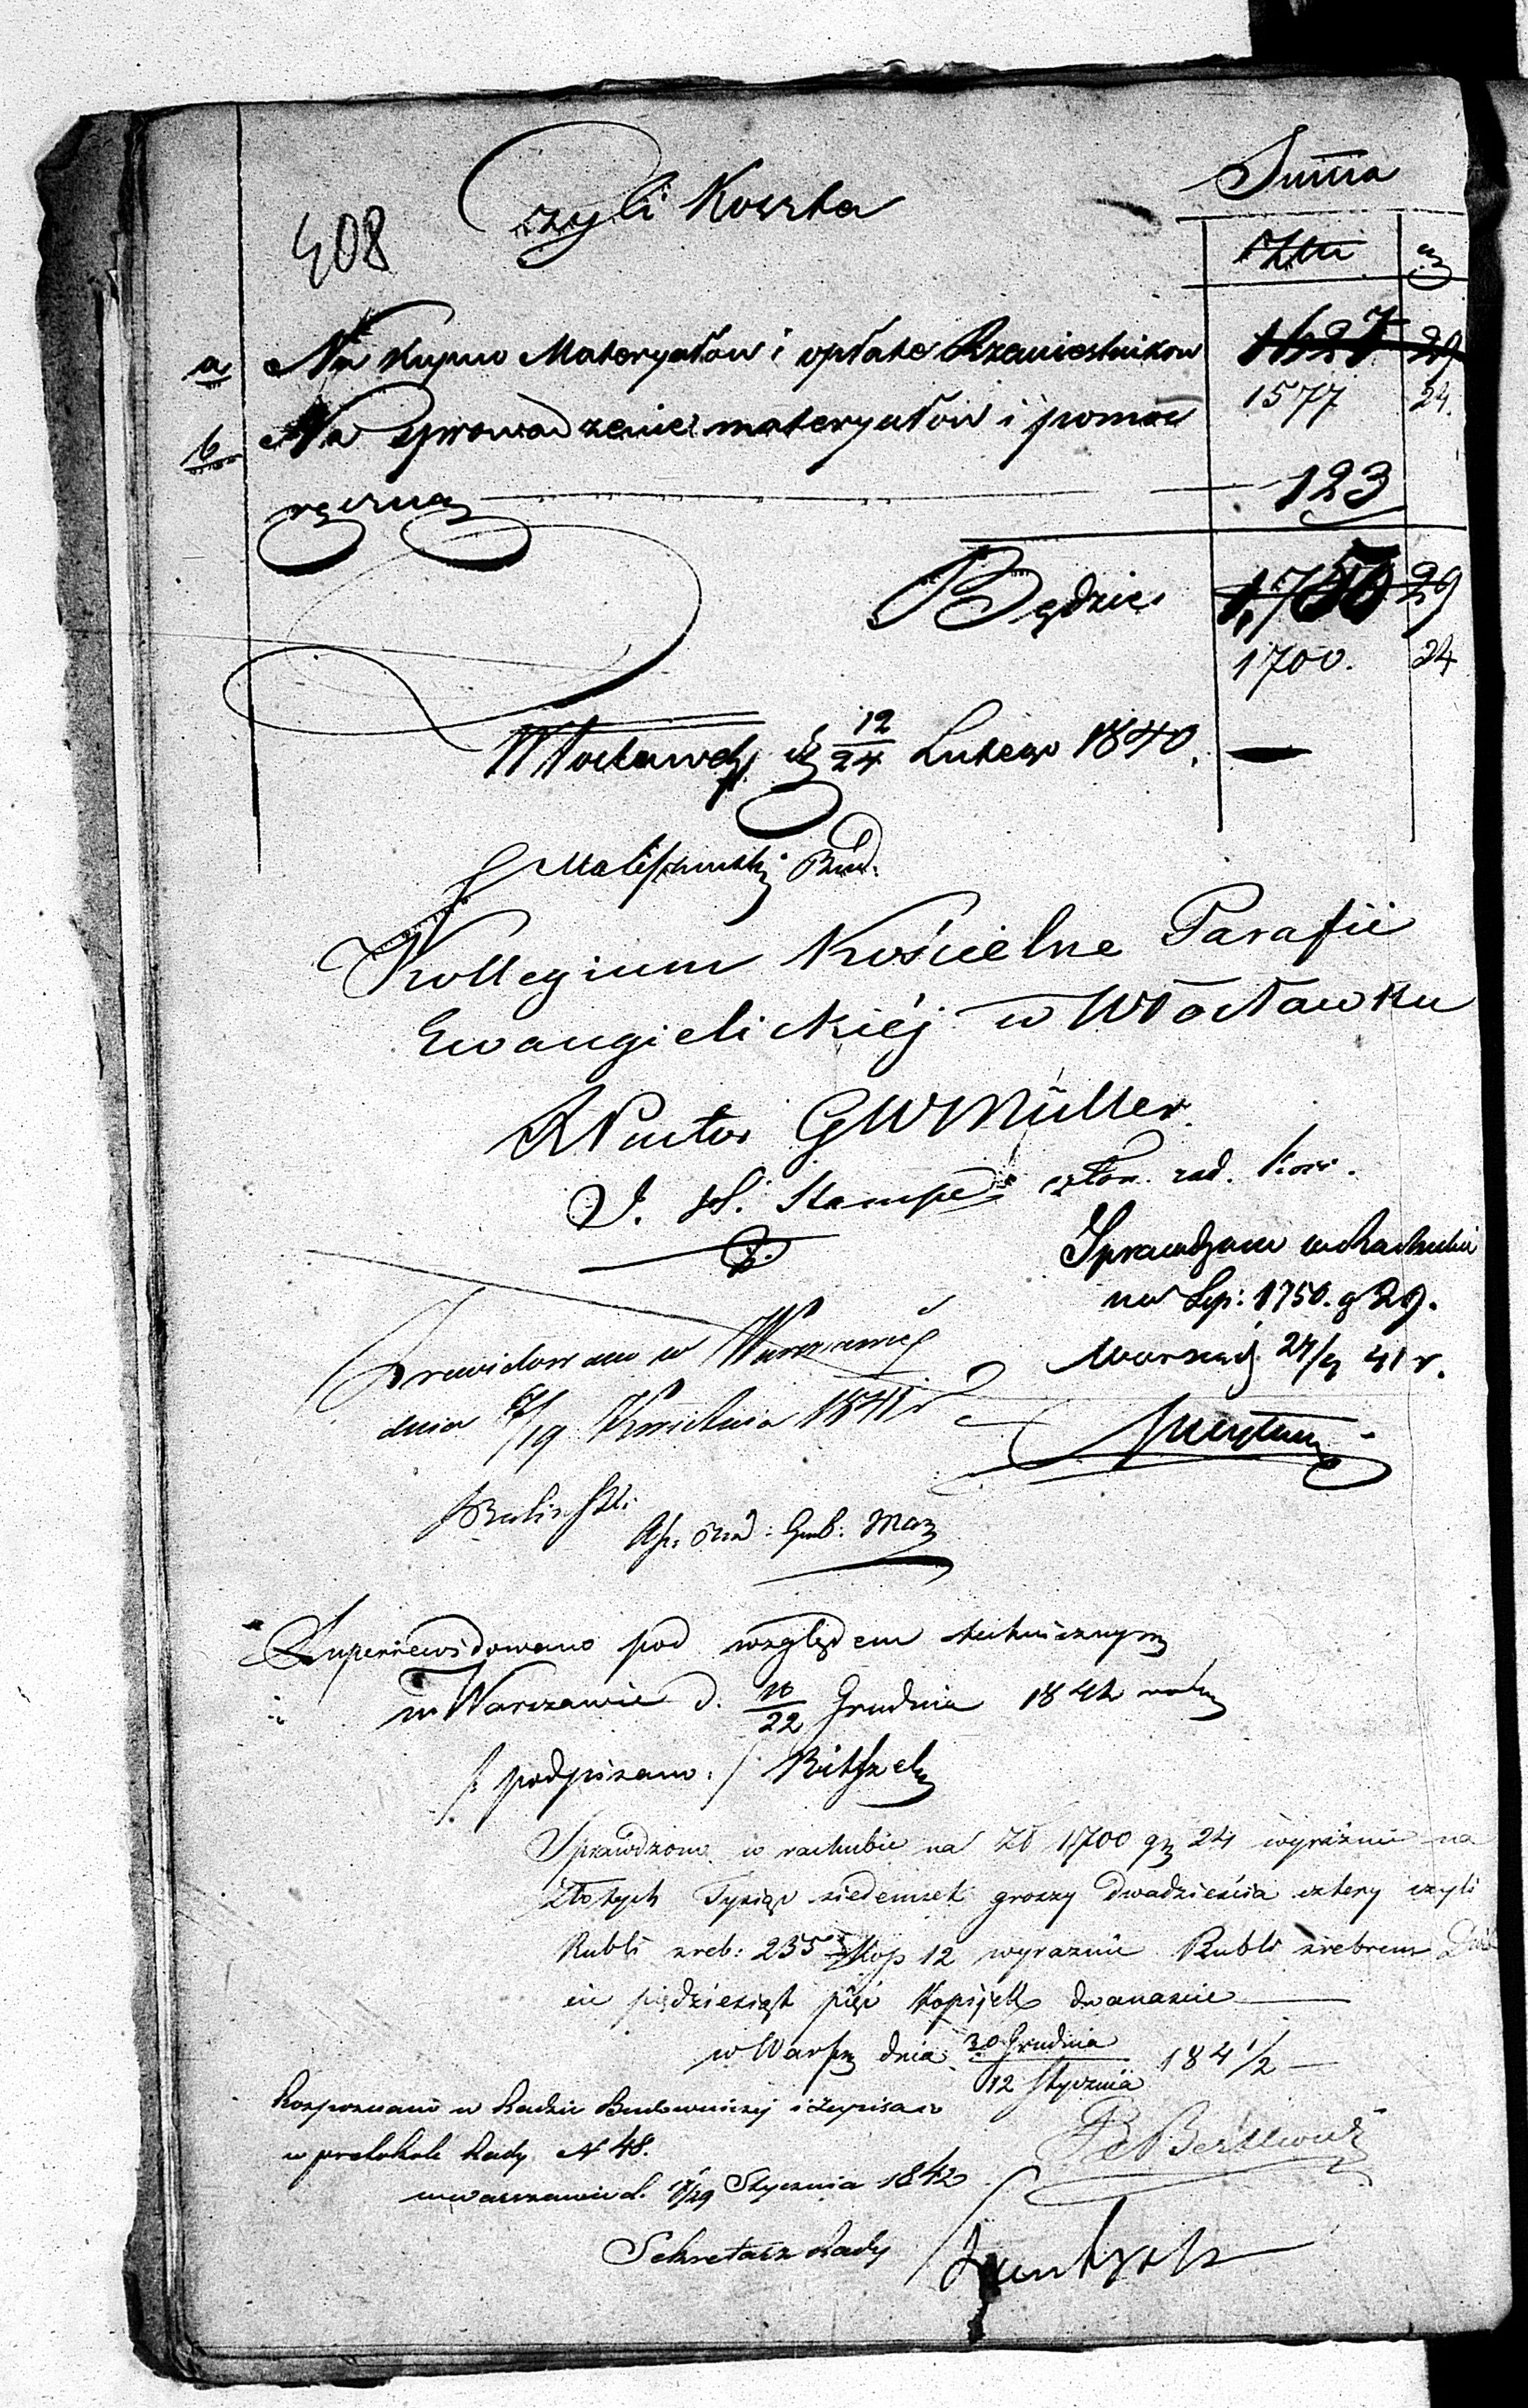 Summa
408 Czyli Koszta
Złtu gr
a Na Kupno Materyałow i opłate Rzemieslnikow 1627 29
1577 24.
b Na Sprowadzenie materyałów i pomoc
ręczną 123
Będzie 1,750 29
1700. 24
Włocławek d 12/24 Lutego 1840.
Bud:
Kollegium Kościelne Parafii
Ewangielickiéj w Włocławku
Pastor GWMüller.
J. Stampe człon. rad. kosc.
Sprawdzono w Rachubie
na Złp: 1750. g 29.
Warszawa 24/4 41 r.
Zrewidowano w Warszawie
dnia 7/19 Kwietnia 1841 r
Bud: Gub: Maz
Superrewidowano pod względem technicznym
w Warszawie d. 10/22 Grudnia 1841 roku
/: podpisano :/
Sprawdzono w rachubie na Zł 1700 gr 24 wyraźnie na
Złotych Tysiąc siedemset groszy dwadzieścia cztery czyli
Rubli sreb: 255 Kop 12 wyraznie Rubli srebrem Dwie
cie pięćdziesiąt pięć Kopijek dwanascie
w Warsz dnia 30 Grudnia / 12 Stycznia 184 1/2
Rozpoznano w Radzie Budowniczej i zapisano
w protokole Rady N 48.
w Warszawie d. 17/29 Stycznia 1842
Sekretarz Rady